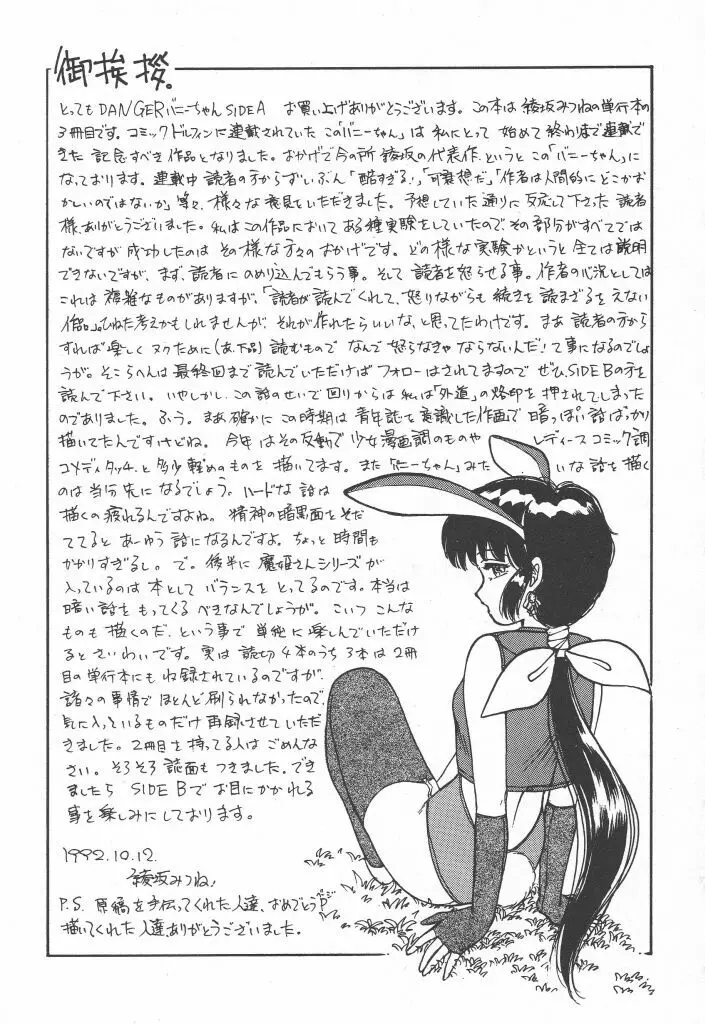 御挨拶。
とってもDANGERバニーちゃんSIDEA お買い上げありがとうございます。この本は綾坂みつねの単行本の
3冊目です。コミックドルフィンに連載されていたこの「バニーちゃん」は私にとって始めて終わりまで連載で
きた記念すべき作品となりました。おかげで今の所綾坂の代表作、というとこの「バニーちゃん」に
なっております。連載中読者の方からずいぶん「酷すぎる!」「可哀想だ」「作者は人間的にどこかお
かしいのではないか」等々、様々な意見をいただきました。予想していた通りに反応して下さった読者
様、ありがとうございました。私はこの作品においてある種実験をしていたので、その部分がすべてでは
ないですが成功したのはその様な方々のおかげです。どの様な実験かというと全ては説明
できないですが、まず、読者にのめり込んでもらう事。そして読者を怒らせる事。作者の心況としては
これは複雑なものがありますが、「読者が読んでくれて、怒りながらも続きを読まざるをえない
作品」。ひねた考えかもしれませんが、それが作れたらいいな、と思ってたわけです。まあ読者の方から
すれば楽しくヌクために(あ、下品)読むものでなんで怒らなきゃならないんだ!て事になるのでしょ
うが。そこらへんは最終回まで読んでいただけばフォローはされてますのでぜひ、SIDE Bの方を
読んで下さい。いやしかし、この話のせいで回りからは私は「外道」の烙印を押されてしまった
のでありました。ふう。まあ確かにこの時期は青年誌を意識した作画で暗っぽい話ばっかり
描いてたんですけどね。今年はその反動で少女漫画調のものやレディースコミック調
コメディタッチ、と多少軽めのものを描いてます。また「バニーちゃん」みたいな話を描く
のは当分先になるでしょう。ハードな話は
描くの疲れるんですよね。精神の暗黒面をそだ
ててるとあーゆう話になるんですよ。ちょっと時間も
かかりすぎるし。で。後半に魔姫さんシリーズが
入っているのは本としてバランスをとってるのです。本当は
暗い話をもってくるべきなんでしょうが。こいつこんな
ものも描くのだ、という事で単純に楽しんでいただけ
るとさいわいです。実は読切4本のうち3本は2冊
目の単行本にも収録されているのですが、
諸々の事情でほとんど刷られなかったので、
気に入っているものだけ再録させていただ
きました。2冊目を持ってる人はごめんな
さい。そろそろ誌面もつきました。でき
ましたらSIDE Bでお目にかかれる
事を楽しみにしております。
1992.10.12.
綾坂みつね!
P.S. 原稿を手伝ってくれた人達、おめでとうページ
描いてくれた人達ありがとうございました。